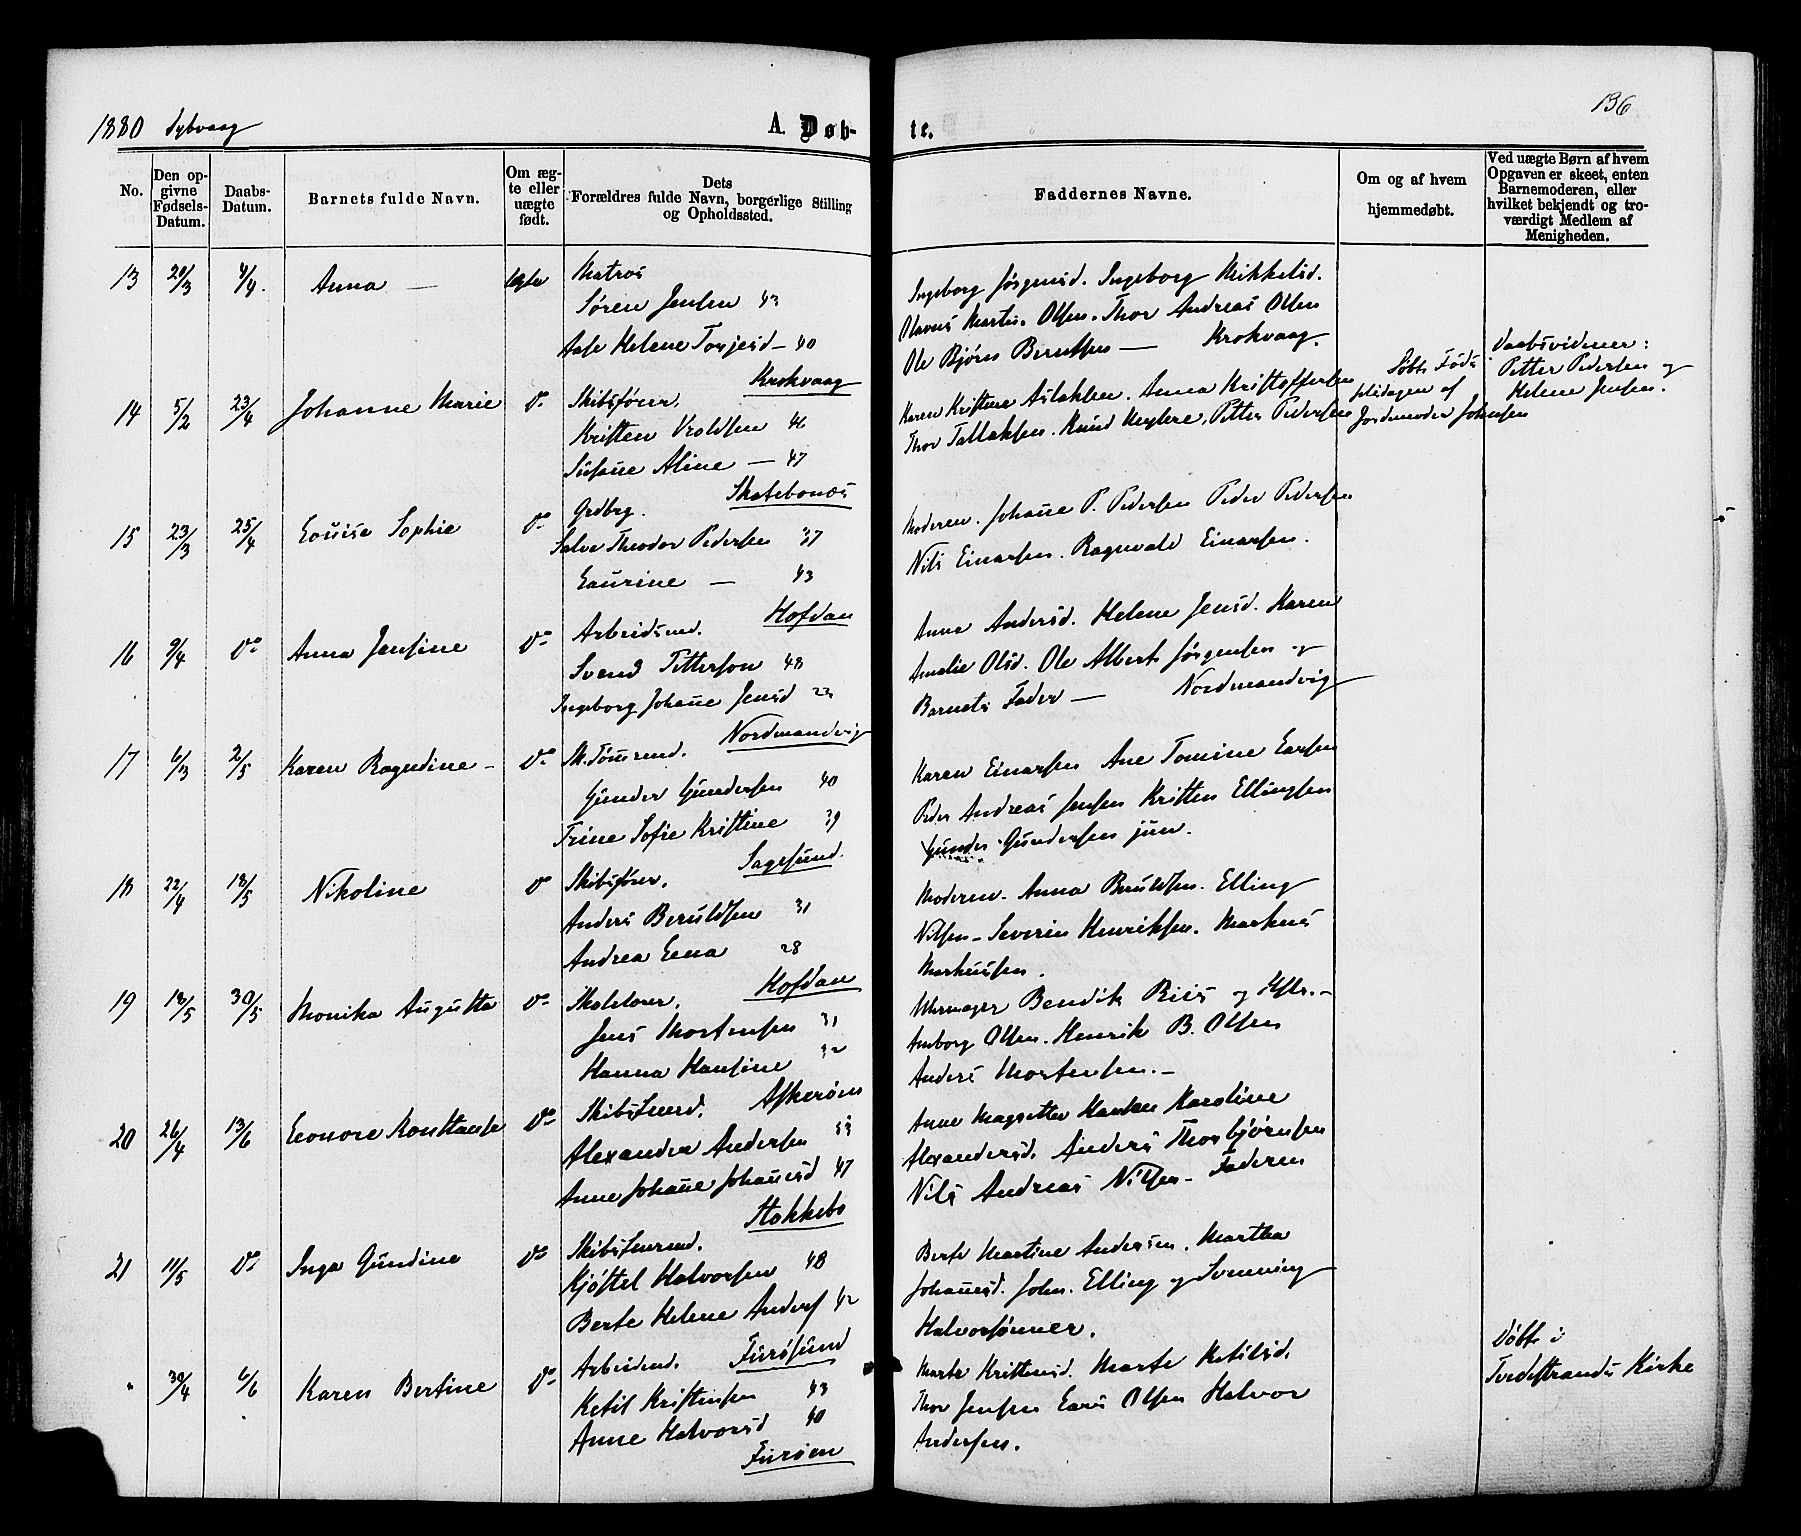 1880 Dybvaag
A. Døb-
te.
136
No.
Den op-
givne
Fødsels-
Datum.
Daabs-
Datum.
Barnets fulde Navn.
Om æg-
te eller
uægte
født.
Dets
Forældres fulde Navn, borgerlige Stilling
og Opholdssted.
Faddernes Navne.
Om og af hvem
hjemmedøbt.
Ved uægte Børn af hvem
Opgaven er skeet, enten
Barnemoderen, eller
hvilket bekjendt og tro-
værdigt Medlem af
Menigheden.
13 4/4. Anna — ægte Matros
Søren Jensen 43
Aase Helene Torjesd — 40
Krokvaag
Ingeborg Jørgensd. Ingeborg Mikkelsd.
Olaves Martin Olsen. Thor Andreas Olsen
Ole Bjørn Berntsen — Krokvaag.
14 5/2 23/4 Johanne Marie do Skibsfører.
Kristen Vroldsen 46
Susanne Aline — 47
Skatebonæs
Karen Kristine Aslaksen. Anna Kristoffersen
Thor Tallaksen. Knud Petter Pedersen
Døbt Føds
elsdagen af
Jordemoder Johnsen
Daabsvidner:
Petter Pedersen og
Helene Jensen.
15 23/3 25/4 Louise Sophie do Grdbrg.
Salve Theodor Pedersen 37
Laurine — 43
Hofdan
Moderen. Johanne P. Pedersen Peder Pedersen
Nils Einarsen. Ragnvald Einarsen.
16 9/4 do Anna Jensine do Arbeidsmd.
Svend Pettersen 48
Ingeborg Johanne Jensd 23
Nordmandvig
Anne Andersd. Helene Jensd. Karen
Amalie Olsd. Ole Albert Jørgensen og
Barnets Fader — Nordmandvig
17 6/3 2/5 Karen Ragndine — do Sk.Tømrmd.
Gunder Gundersen 40
Trine Sofie Kristine 39
Sagesund.
Karen Einarsen Ane Tomine Larsen
Peder Andreas Jensen Kristen Ellingsen
Gunder Gundersen jun.
18 22/4 18/5 Nikoline do Skibsfører.
Anders Beruldsen 31
Andrea Lena 28
Hofdan
Moderen. Anna Beruldsen. Elling
Nilsen — Severin Henriksen. Markus
Markussen.
19 18/5 30/5 Monika Augusta do Skolelærer.
Jens Mortensen 31
Hanna Hansine 32
Askerøen
Uhrmager Bendik Riis og Hstr. —
Amborg Olsen. Henrik B. Olsen
Anders Mortensen. —
20 26/4 13/6 Leonore Konstanse do Skibstmrd.
Alexander Andersen
Anne Johanne Johannesd 47
Stokkebo
Anne Magrethe Hansen Karoline
Alexandersd. Anders Thorbjørnsen
Nils Andreas Nilsen — Faderen
21 11/5 do Inga Gundine do Skibstmrmd.
Kjøstel Halvorsen 48
Berte Helene Anders 42
Furøsund
Berte Martine Andersen. Martha
Johannesd. John. Elling og Svenning
Halvorsønner.
" 30/4 6/6 Karen Bertine do Arbeidsmd.
Ketil Kristensen 43
Anne Halvorsd 40
Furøen
Marte Kristensd. Marte Ketilsd.
Thor Jensen Lars Olsen Halvor
Andersen.
Døbt i
Tvedestrands Kirke